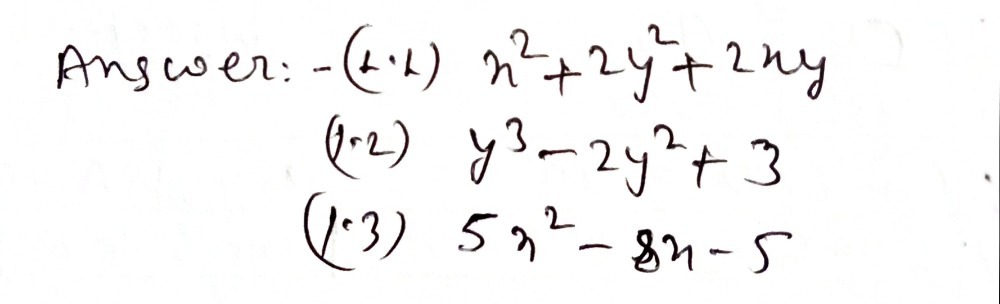 Answer:-(1.1) x²+2y²+2xy
(1.2) y³-2y²+3
(1.3) 5x²-8x-5